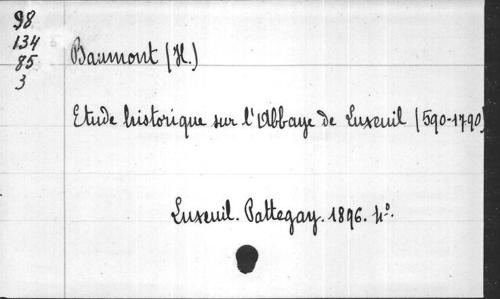 98
134
85
3
Baumont (H.)
Etude historique sur l'Abbaye de Luxeuil (590-1790)
Luxeuil. Pattegay. 1896. 4º.